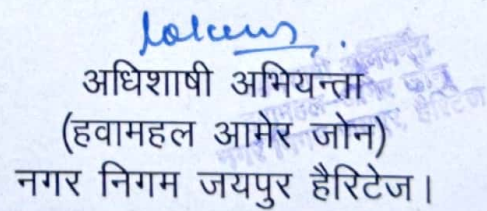 अधिशाषी अभियन्ता
(हवामहल आमेर जोन)
नगर निगम जयपुर हैरिटेज।